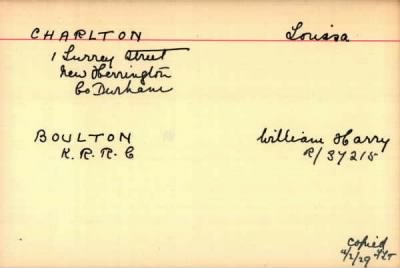 CHARLTON Louisa
1 Surrey Street
New Herrington
Co Durham
BOULTON William Harry
K. R. R. C R/37215
Copied
4/2/29